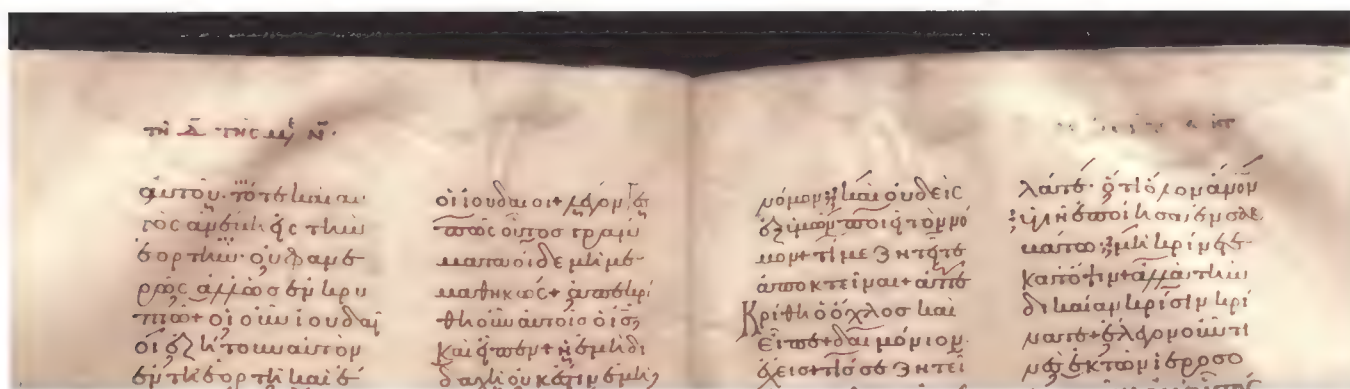 τῆ Δ̄ τῆς με Ν̄·
αὐτοῦ· τότε καὶ αυ
τὸς ἀνέβη εἰς τὴν
ἑορτήν· οὐ φανε
ρῶς ἀλλ' ὡς ἐν κρυ
πτῶ+ οἱ οὖν ἰουδαῖ
οι ἐζήτουν αὐτὸν
ἐν τῆ ἑορτῆ καὶ ἔ
οἱ ἰουδαῖοι+ λέγοντες
πῶς οὗτος γράμ
ματα οἶδε μὴ με
μαθηκώς+ ἀπεκρί
θη οὖν αὐτοῖς ὁ ις̄
καὶ εἶπεν+ ἡ ἐμὴ δι
δαχὴ οὐκ ἔστιν ἐμὴ
νόμον; καὶ οὐδεὶς
ἐξ ὑμῶν ποιεῖ τὸν νό
μον+ τί με ζητεῖτε
ἀποκτεῖναι+ ἀπε
Κρίθη ὁ ὄχλος καὶ
εἶπε+ δαιμόνιον
ἔχεις+ τίς σε ζητεῖ
λᾶτε· ὅτι ὅλον ἄνον
ὑγιῆ ἐποίησα, ἐν
μὴ κρίνετε
κατ' ὄψιν+ ἀλλὰ τὴν
δικαίαν κρίσιν κρί
νατε+ ἔλεγον οὖν τι
νὲς ἐκ τῶν ἱεροσο